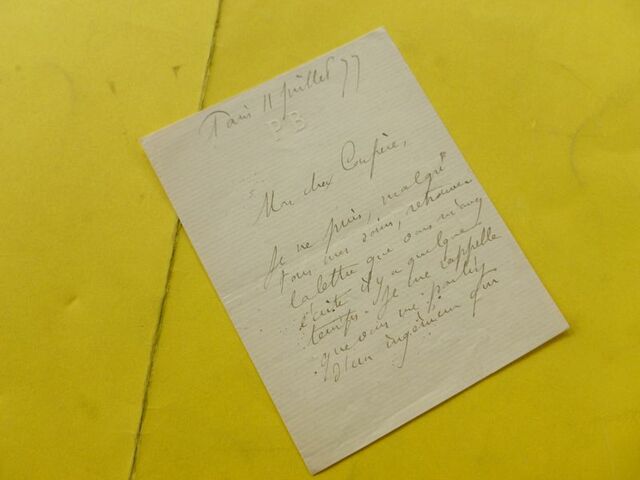 Paris 11 Juillet 77
PB
Mon cher Confrère,
Je ne puis, malgré
tous mes soins, retrouver
la lettre que vous m'avez
écrite il y a quelque
temps. Je me rappelle
que vous me parliez
d'un ingénieur qui